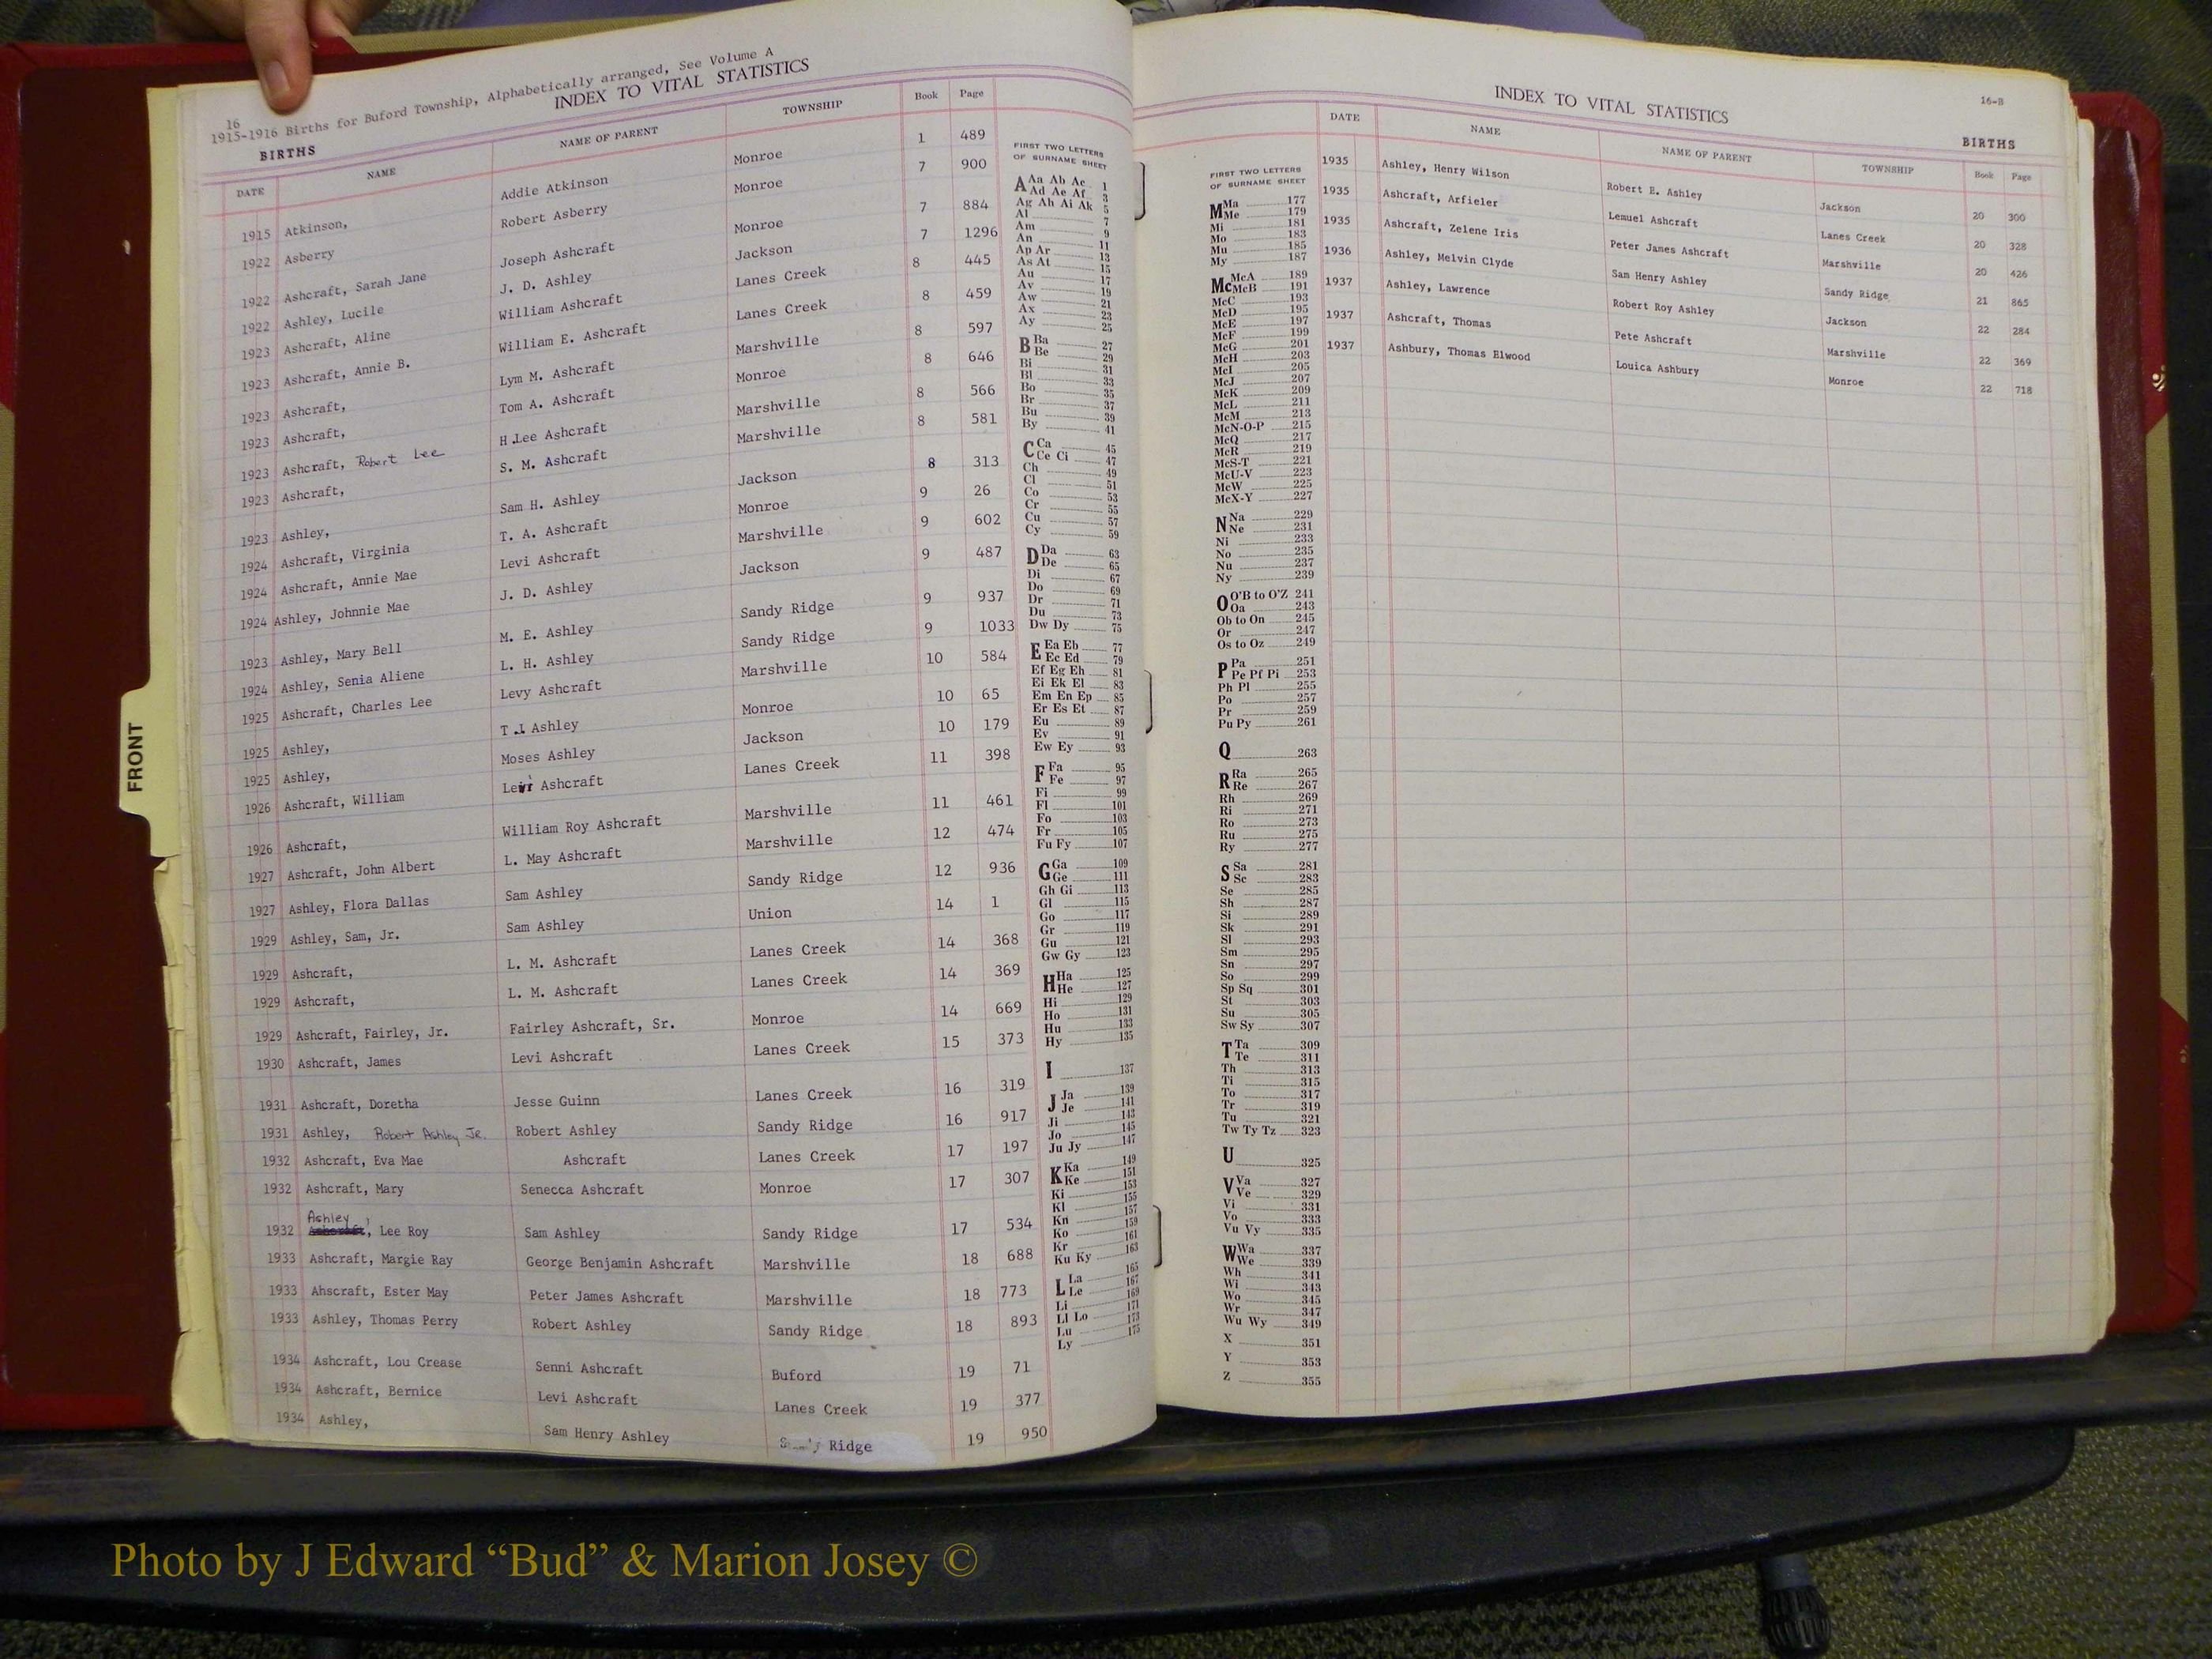 16
1915-1916 Births for Buford Township, Alphabetically arranged, See Volume A
INDEX TO VITAL STATISTICS
BIRTHS
DATE NAME NAME OF PARENT TOWNSHIP Book Page
1915 Atkinson, Addie Atkinson Monroe 1 489
1922 Asberry Robert Asberry Monroe 7 900
1922 Ashcraft, Sarah Jane Joseph Ashcraft Monroe 7 884
1922 Ashley, Lucile J. D. Ashley Jackson 7 1296
1923 Ashcraft, Aline William Ashcraft Lanes Creek 8 445
1923 Ashcraft, Annie B. William E. Ashcraft Lanes Creek 8 459
1923 Ashcraft, Lym M. Ashcraft Marshville 8 597
1923 Ashcraft, Tom A. Ashcraft Monroe 8 646
1923 Ashcraft, Robert Lee H.Lee Ashcraft Marshville 8 566
1923 Ashcraft, S. M. Ashcraft Marshville 8 581
1923 Ashley, Sam H. Ashley Jackson 8 313
1924 Ashcraft, Virginia T. A. Ashcraft Monroe 9 26
1924 Ashcraft, Annie Mae Levi Ashcraft Marshville 9 602
1924 Ashley, Johnnie Mae J. D. Ashley Jackson 9 487
1923 Ashley, Mary Bell M. E. Ashley Sandy Ridge 9 937
1924 Ashley, Senia Aliene L. H. Ashley Sandy Ridge 9 1033
1925 Ashcraft, Charles Lee Levy Ashcraft Marshville 10 584
1925 Ashley, T.J Ashley Monroe 10 65
1925 Ashley, Moses Ashley Jackson 10 179
1926 Ashcraft, William Levi Ashcraft Lanes Creek 11 398
1926 Ashcraft, William Roy Ashcraft Marshville 11 461
1927 Ashcraft, John Albert L. May Ashcraft Marshville 12 474
1927 Ashley, Flora Dallas Sam Ashley Sandy Ridge 12 936
1929 Ashley, Sam, Jr. Sam Ashley Union 14 1
1929 Ashcraft, L. M. Ashcraft Lanes Creek 14 368
1929 Ashcraft, L. M. Ashcraft Lanes Creek 14 369
1929 Ashcraft, Fairley, Jr. Fairley Ashcraft, Sr. Monroe 14 669
1930 Ashcraft, James Levi Ashcraft Lanes Creek 15 373
1931 Ashcraft, Doretha Jesse Guinn Lanes Creek 16 319
1931 Ashley, Robert Ashley Jr. Robert Ashley Sandy Ridge 16 917
1932 Ashcraft, Eva Mae Ashcraft Lanes Creek 17 197
1932 Ashcraft, Mary Senecca Ashcraft Monroe 17 307
Ashley,
1932 Ashcraft, Lee Roy Sam Ashley Sandy Ridge 17 534
1933 Ashcraft, Margie Ray George Benjamin Ashcraft Marshville 18 688
1933 Ahscraft, Ester May Peter James Ashcraft Marshville 18 773
1933 Ashley, Thomas Perry Robert Ashley Sandy Ridge 18 893
1934 Ashcraft, Lou Crease Senni Ashcraft Buford 19 71
1934 Ashcraft, Bernice Levi Ashcraft Lanes Creek 19 377
1934 Ashley, Sam Henry Ashley Ridge 19 950
FIRST TWO LETTERS
OF SURNAME SHEET
A Aa Ab Ac 1
Ad Ae Af 3
Ag Ah Ai Ak 5
Al 7
Am 9
An 11
Ap Ar 13
As At 15
Au 17
Av 19
Aw 21
Ax 23
Ay 25
B Ba 27
Be 29
Bi 31
Bl 33
Bo 35
Br 37
Bu 39
By 41
C Ca 45
Ce Ci 47
Ch 49
Cl 51
Co 53
Cr 55
Cu 57
Cy 59
D Da 63
De 65
Di 67
Do 69
Dr 71
Du 73
Dw Dy 75
E Ea Eb 77
Ec Ed 79
Ef Eg Eh 81
Ei Ek El 83
Em En Ep 85
Er Es Et 87
Eu 89
Ev 91
Ew Ey 93
F Fa 95
Fe 97
Fi 99
Fl 101
Fo 103
Fr 105
Fu Fy 107
G Ga 109
Ge 111
Gh Gi 113
Gl 115
Go 117
Gr 119
Gu 121
Gw Gy 123
H Ha 125
He 127
Hi 129
Ho 131
Hu 133
Hy 135
I 137
J Ja 139
Je 141
Ji 143
Jo 145
Ju Jy 147
K Ka 149
Ke 151
Ki 153
Kl 155
Kn 157
Ko 159
Kr 161
Ku Ky 163
L La 165
Le 167
Li 169
Ll Lo 171
Lu 173
Ly 175
FRONT
INDEX TO VITAL STATISTICS
16-B
BIRTHS
DATE NAME NAME OF PARENT TOWNSHIP Book Page
1935 Ashley, Henry Wilson Robert E. Ashley Jackson 20 300
1935 Ashcraft, Arfieler Lemuel Ashcraft Lanes Creek 20 328
1935 Ashcraft, Zelene Iris Peter James Ashcraft Marshville 20 426
1936 Ashley, Melvin Clyde Sam Henry Ashley Sandy Ridge 21 865
1937 Ashley, Lawrence Robert Roy Ashley Jackson 22 284
1937 Ashcraft, Thomas Pete Ashcraft Marshville 22 369
1937 Ashbury, Thomas Elwood Louica Ashbury Monroe 22 718
FIRST TWO LETTERS
OF SURNAME SHEET
M Ma 177
Me 179
Mi 181
Mo 183
Mu 185
My 187
Mc McA 189
McB 191
McC 193
McD 195
McE 197
McF 199
McG 201
McH 203
McI 205
McJ 207
McK 209
McL 211
McM 213
McN-O-P 215
McQ 217
McR 219
McS-T 221
McU-V 223
McW 225
McX-Y 227
N Na 229
Ne 231
Ni 233
No 235
Nu 237
Ny 239
O O'B to O'Z 241
Oa 243
Ob to On 245
Or 247
Os to Oz 249
P Pa 251
Pe Pf Pi 253
Ph Pl 255
Po 257
Pr 259
Pu Py 261
Q 263
R Ra 265
Re 267
Rh 269
Ri 271
Ro 273
Ru 275
Ry 277
S Sa 281
Sc 283
Se 285
Sh 287
Si 289
Sk 291
Sl 293
Sm 295
Sn 297
So 299
Sp Sq 301
St 303
Su 305
Sw Sy 307
T Ta 309
Te 311
Th 313
Ti 315
To 317
Tr 319
Tu 321
Tw Ty Tz 323
U 325
V Va 327
Ve 329
Vi 331
Vo 333
Vu Vy 335
W Wa 337
We 339
Wh 341
Wi 343
Wo 345
Wr 347
Wu Wy 349
X 351
Y 353
Z 355
Photo by J Edward “Bud” & Marion Josey ©